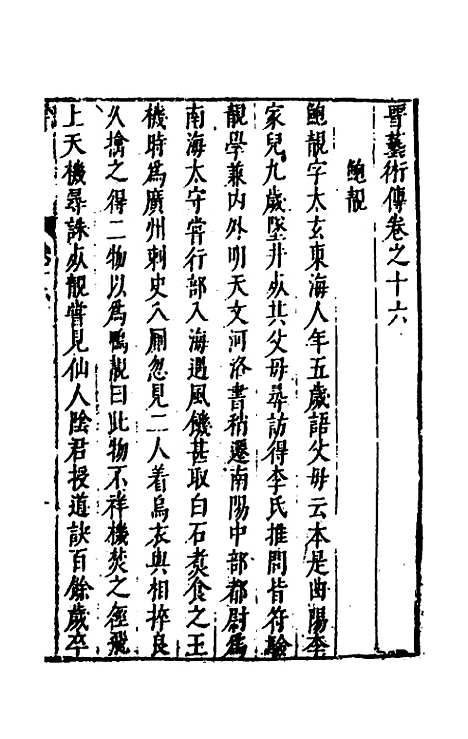 晉藝術傳卷之十六
鮑靚
鮑靚字太玄東海人年五歲語父母云本是曲陽李
家兒九歲墜井死其父母尋訪得李氏推問皆符驗
靚學兼內外明天文河洛書稍遷南陽中部都尉爲
南海太守嘗行部入海遇風饑甚取白石煑食之王
機時爲廣州刺史入厠忽見二人着烏衣與相捽良
久擒之得二物以爲鴨靚曰此物不祥機焚之徑飛
上天機尋誅死靚嘗見仙人陰君授道訣百餘歲卒